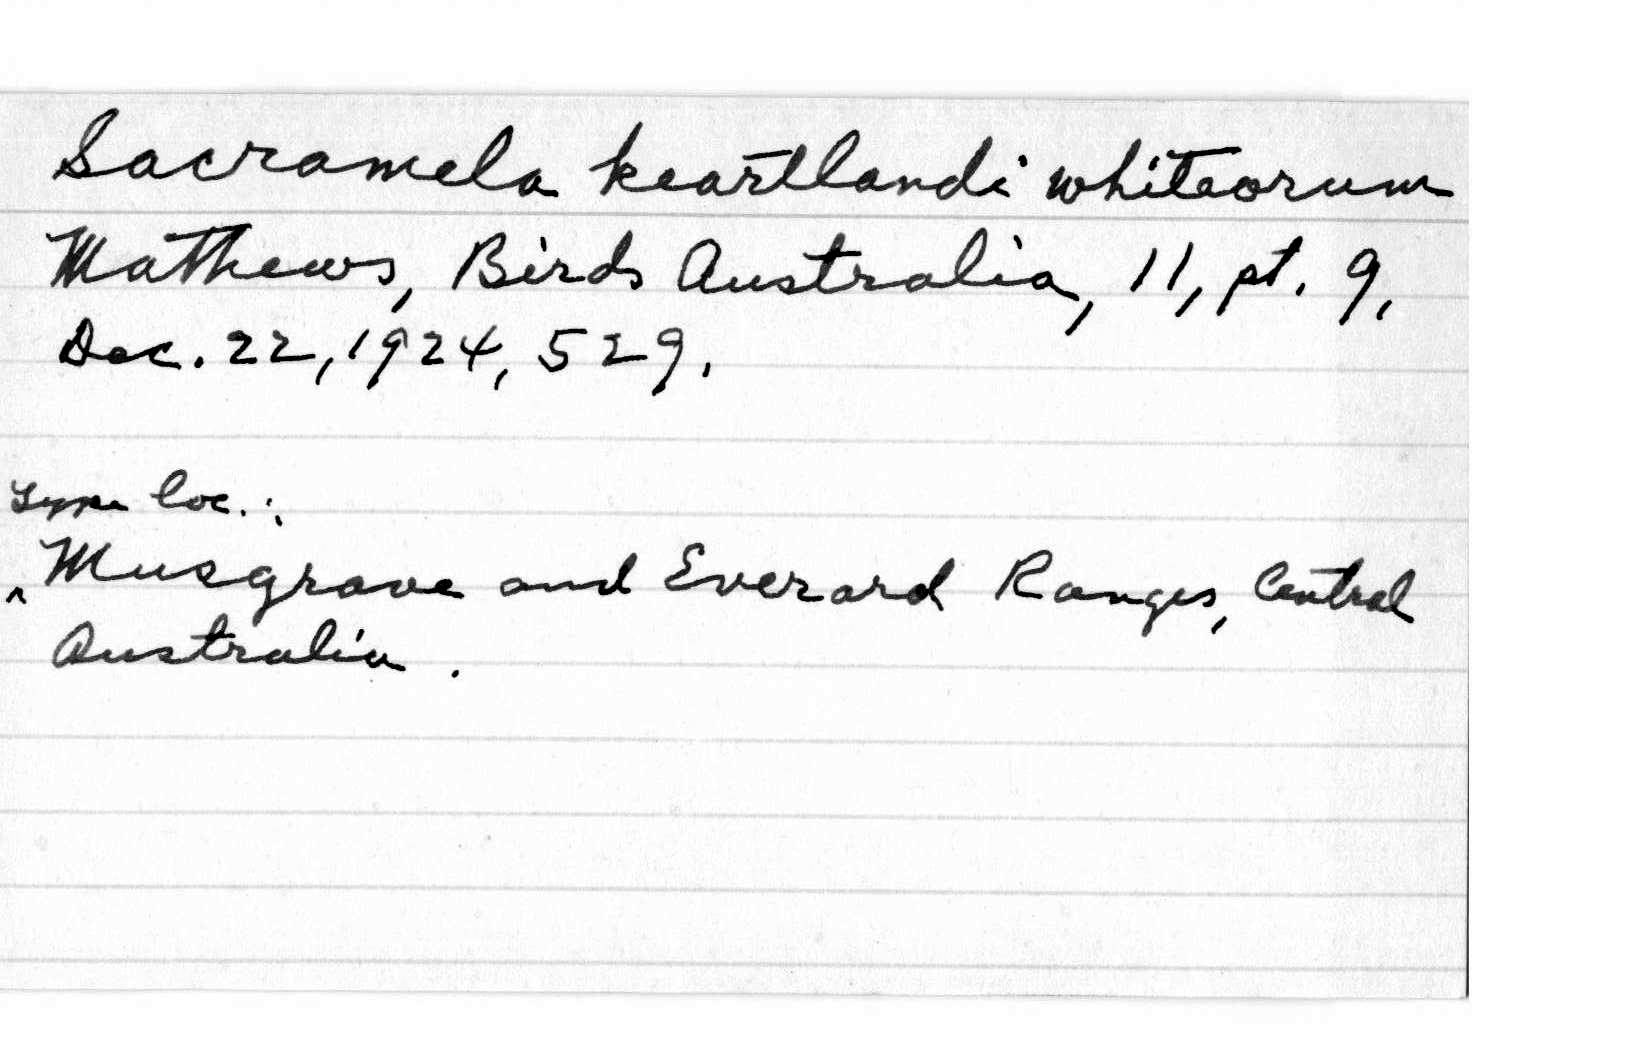 Sacramela keartlandi whiteorum
Mathews, Birds Australia, 11, pt. 9,
Dec. 22, 1924, 529.
Type loc.:
^ Musgrave and Everard Ranges, Central
Australia.